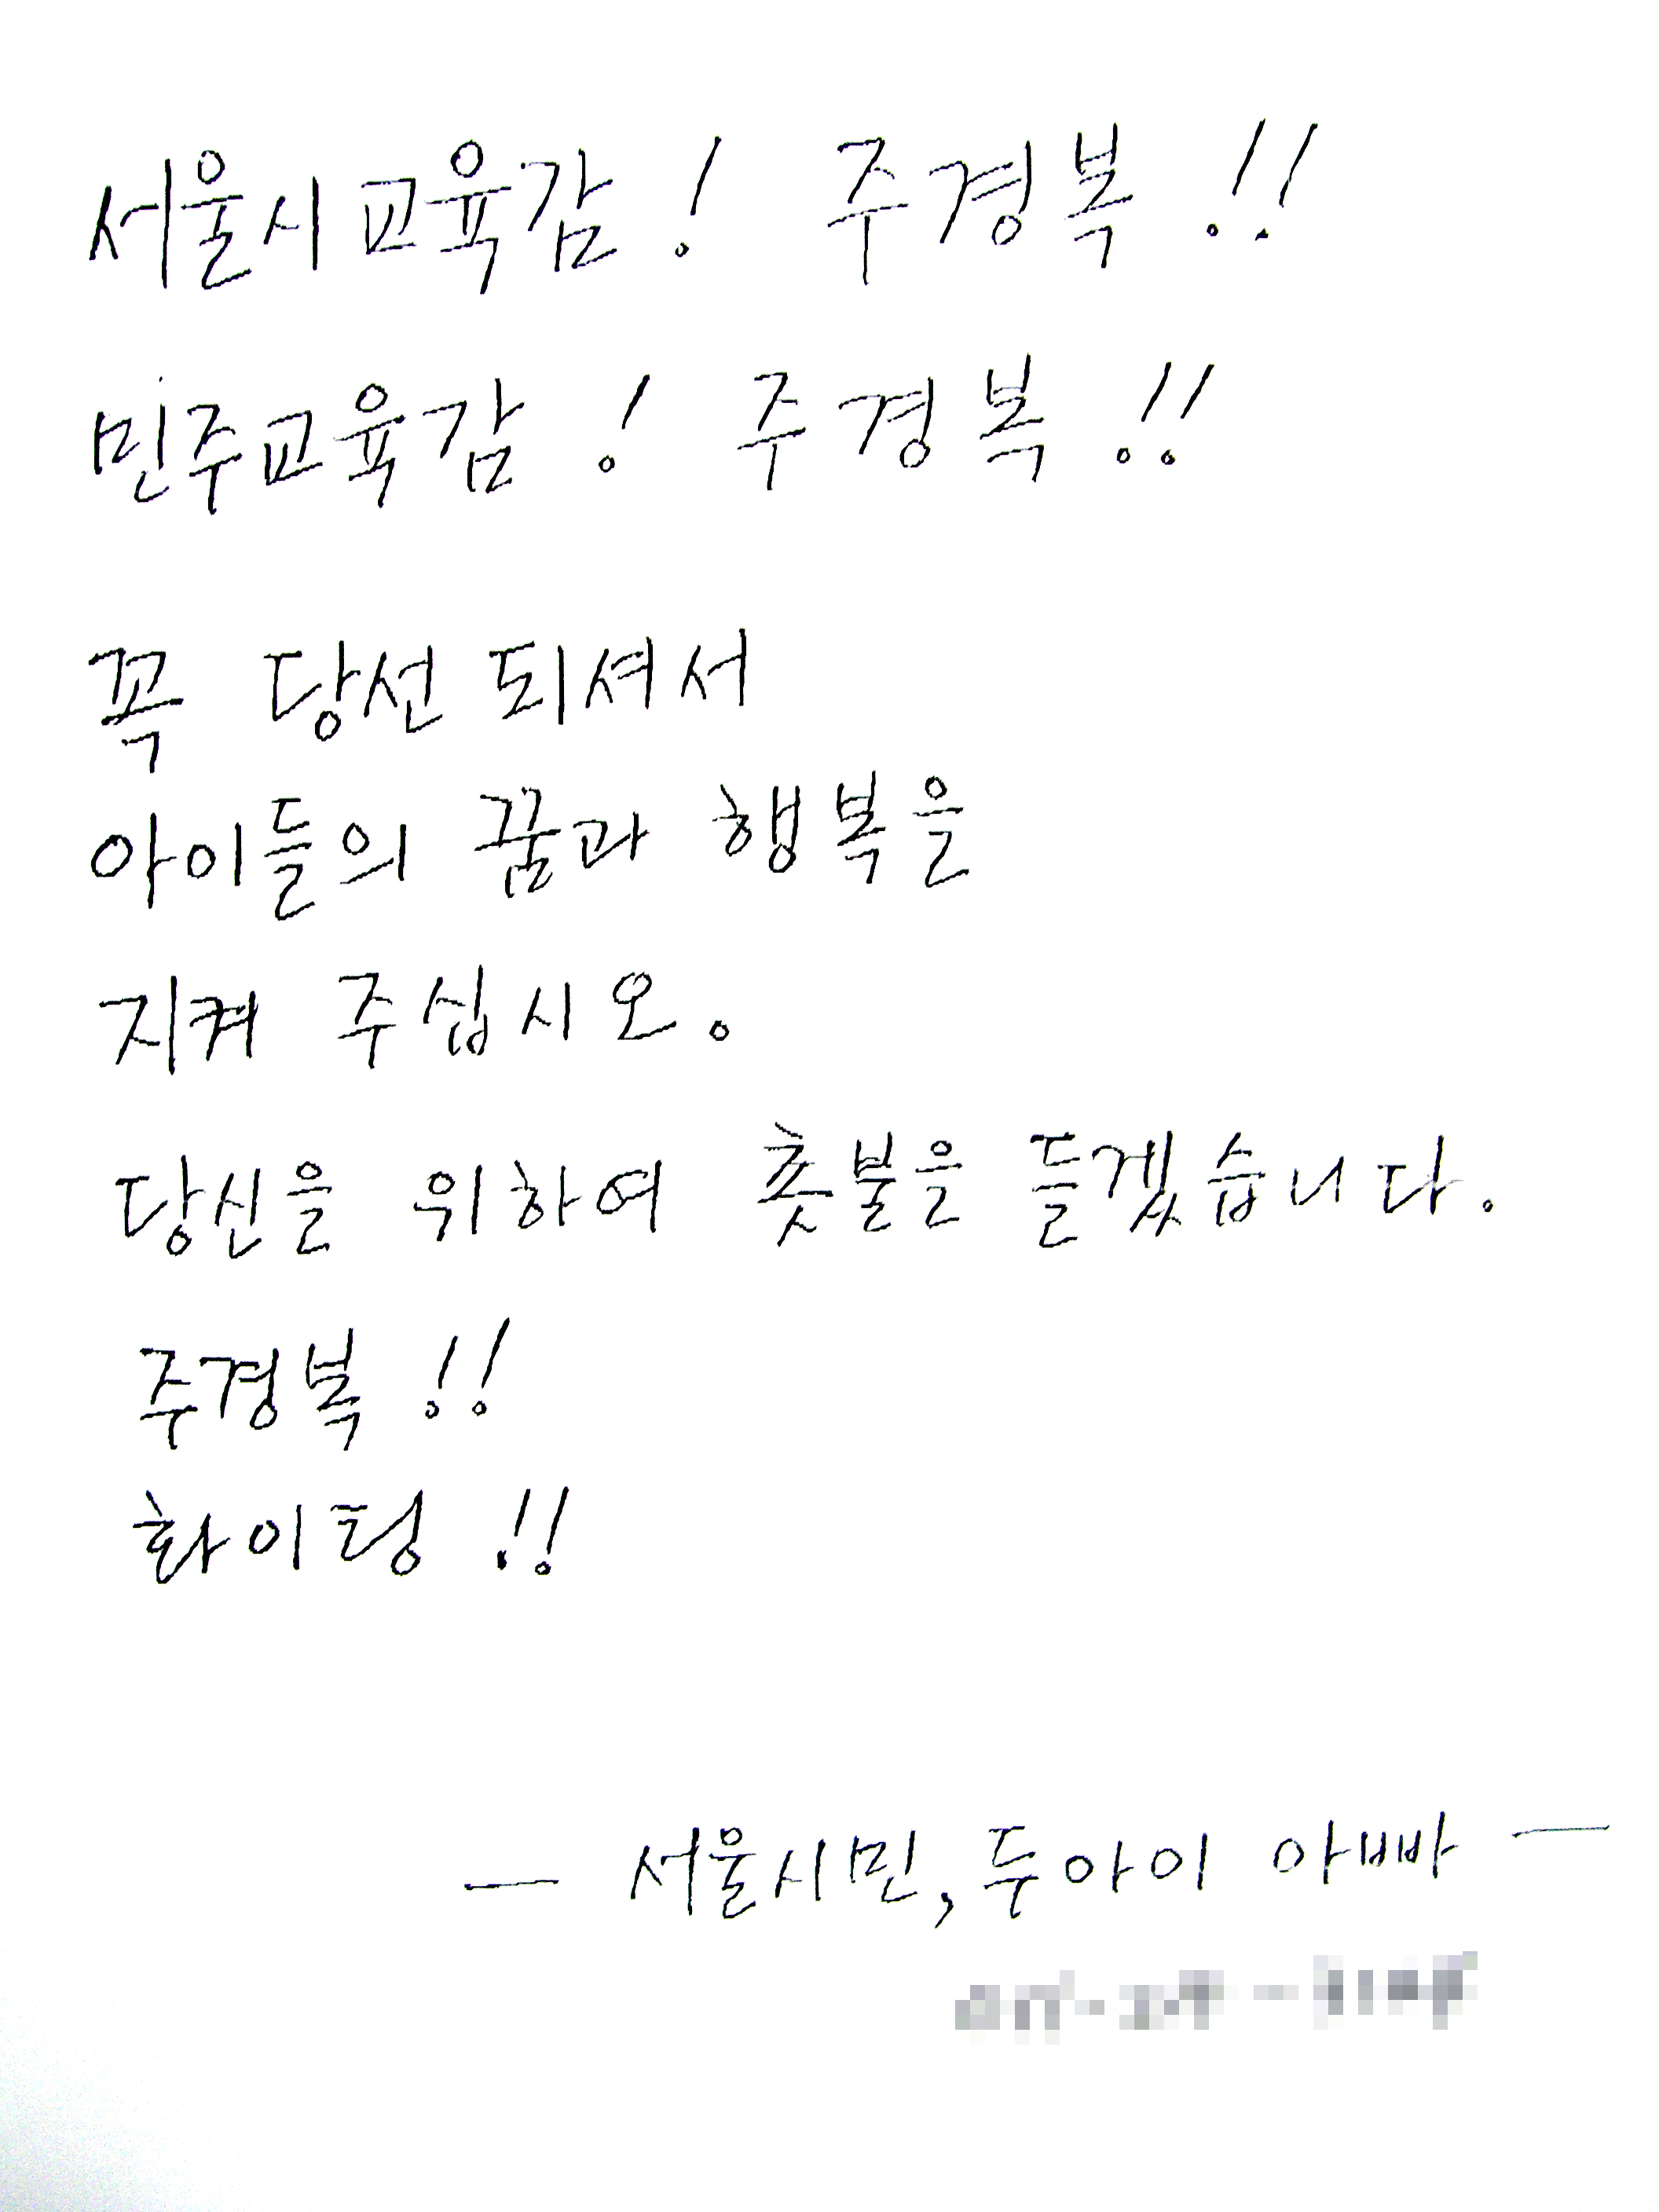 서울시교육감! 주경복!!
민주교육감! 주경복!!
꼭 당선 되셔서
아이들의 꿈과 행복을
지켜 주십시오.
당신을 위하여 촛불을 들겠습니다.
주경복!!
화이팅!!
— 서울시민, 두아이 아빠 —